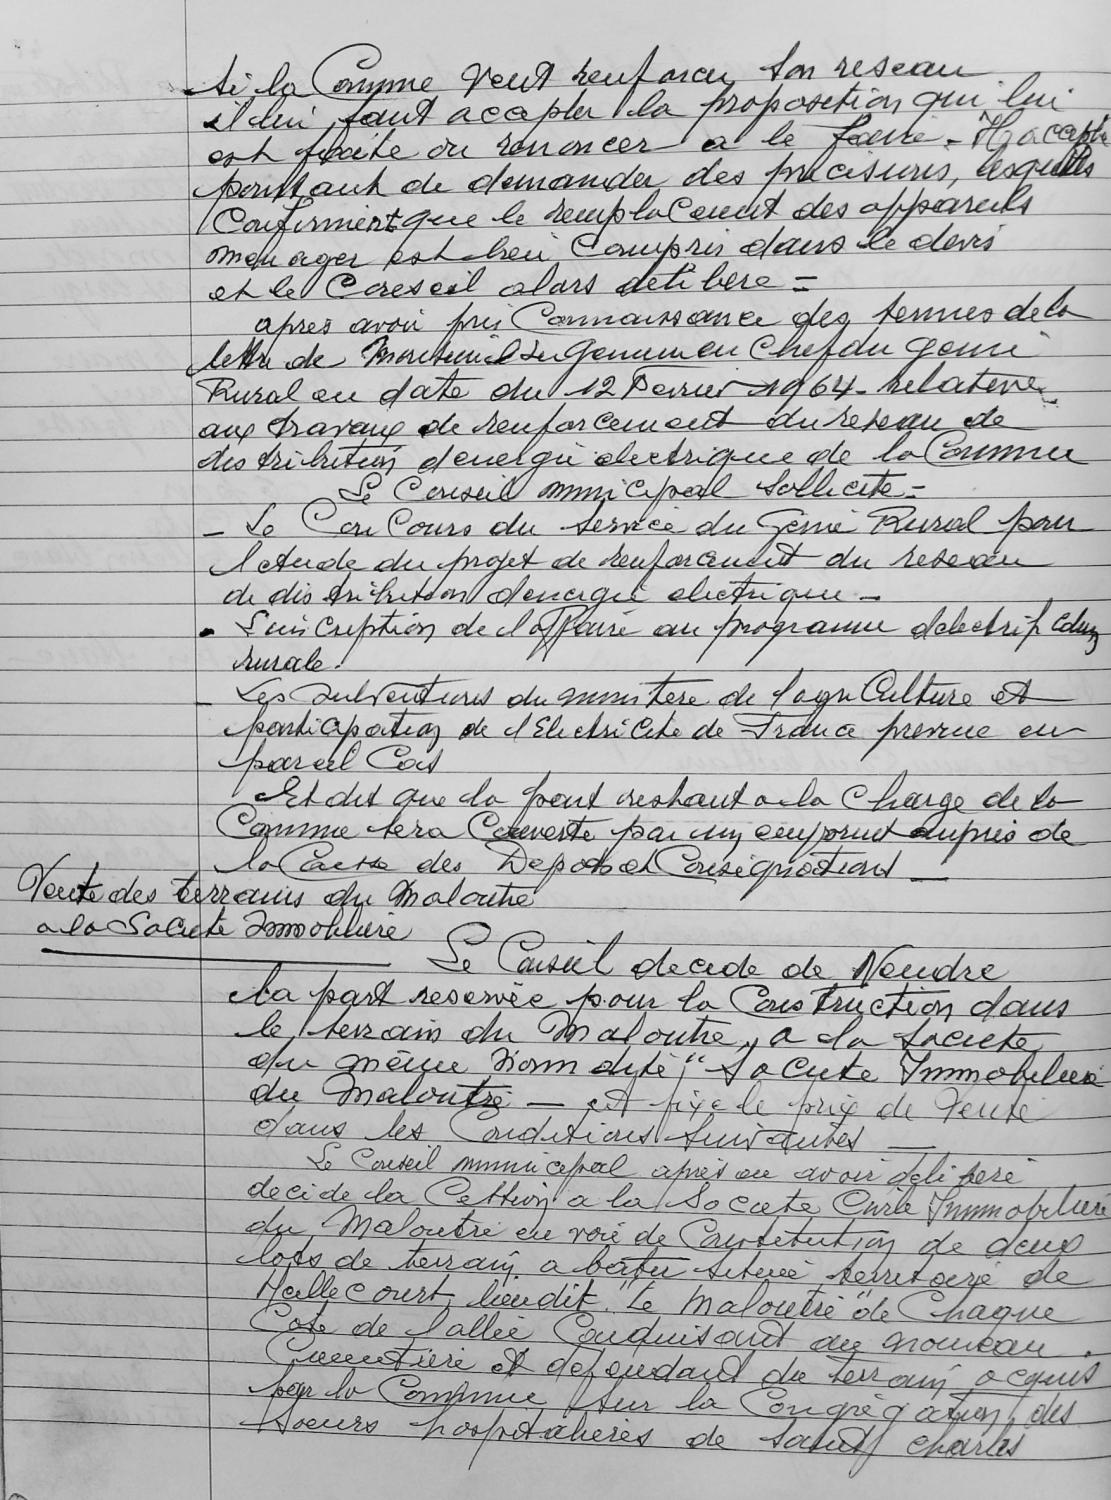 Si la Comme veut renforcer son reseau
il lui faut accepter la proposition qui lui
est faite ou renoncer a le faire - Il accepte
pourtant de demander des precisions, lesquelles
Confirment que le remplacement des appareils
menager est bien compris dans le devis
et le Conseil alors delibere =
apres avoir pris Connaissance des termes de la
lettre de Monsieur l'Ingenieur en Chef du genie
Rural en date du 12 Fevrier 1964 - relative
aux travaux de renforcement du reseau de
distribution d'energie electrique de la Commune
Le Conseil municipal sollicite =
- Le Concours du service du Génie Rural pour
l'etude du projet de renforcement du reseau
de distribution d'energie electrique -
- L'inscription de l'affaire au programme
rurale.
- Les subventions du ministère de l'agriculture et
participation de l'Electricité de France prevue en
pareil Cas
Et dit que la part restant a la Charge de la
Comme sera Couverte par un emprunt aupres de
la Caisse des Depots et Consignations -
Vente des terrains du Maloutre
a la Societe Immobiliere
Le Conseil decide de Vendre
la part reservée pour la Construction dans
le terrain du Maloutre, a la Societe
du même nom "Societe Immobiliere
du Maloutre - et fixe le prix de Vente
dans les Conditions suivantes -
Le Conseil municipal après en avoir delibere
decide la Cession a la Societe Civile Immobiliere
du Maloutre en voie de Constitution de deux
lots de terrain a batir territoire de
lieudit "Le Maloutre" de Chaque
Cote de l'allée Conduisant au nouveau
Cimetière et dependant du terrain acquis
par la Commune sur la Congrégation des
Soeurs hospitalieres de Saint Charles